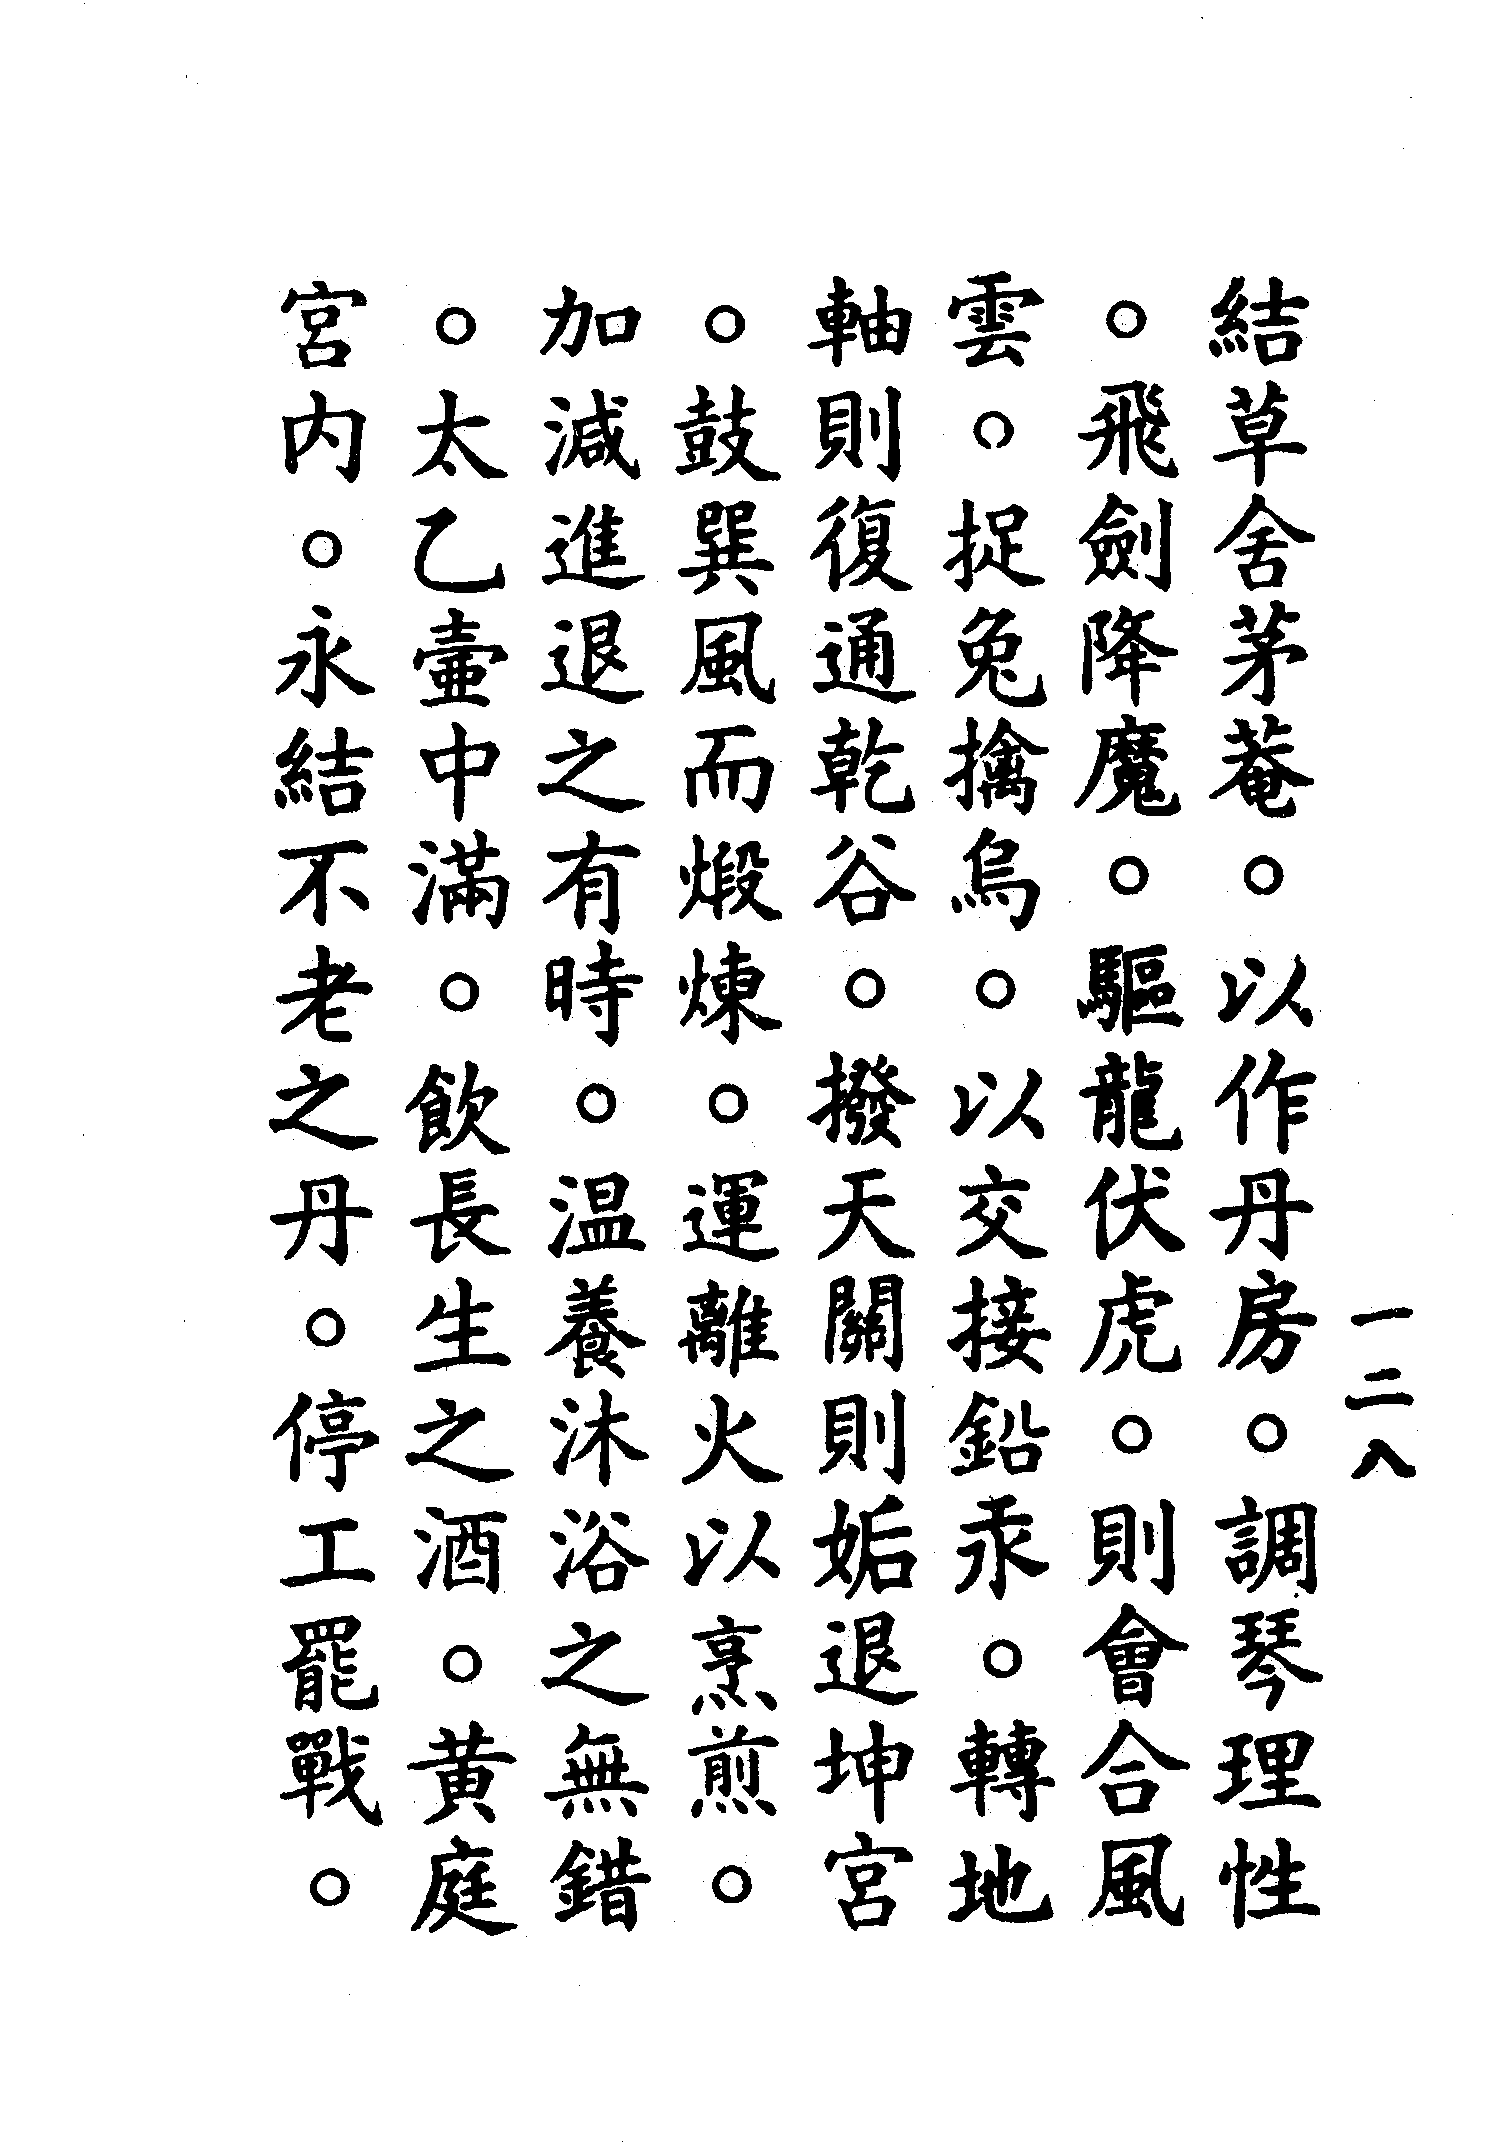 一二八
結草舍茅菴。以作丹房。調琴理性
。飛劍降魔。驅龍伏虎。則會合風
雲。捉兔擒烏。以交接鉛汞。轉地
軸則復通乾谷。撥天關則姤退坤宮
。鼓巽風而煅煉。運離火以烹煎。
加減進退之有時。溫養沐浴之無錯
。太乙壷中滿。飲長生之酒。黄庭
宮內。永結不老之丹。停工罷戰。